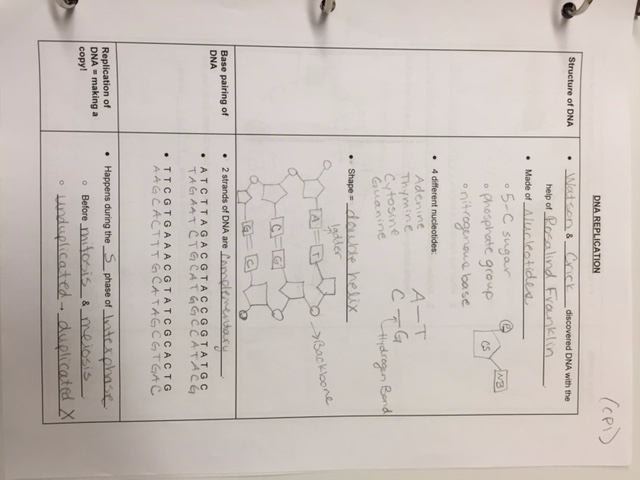 (CP1)
DNA REPLICATION
Structure of DNA
• Watson & Crick discovered DNA with the
help of Rosalind Franklin
• Made of Nucleotides
○ 5-C sugar
○ phosphate group
○ nitrogenous base
P
CS
NB
• 4 different nucleotides:
Adenine
Thymine
Cytosine
Guanine
A—T
C—G
Hydrogen Bond
• Shape = double helix
ladder
→ Backbone
A T
C G
G C
Base pairing of
DNA
• 2 strands of DNA are Complementary
• A T C T T A G A C G T A C C G G T A T G C
T A G A A T C T G C A T G G C C A T A C G
• T T C G T G A A A C G T A T C G C A C T G
A A G C A C T T T G C A T A G C G T G A C
Replication of
DNA = making a
copy!
• Happens during the S phase of Interphase
○ Before mitosis & meiosis
○ unduplicated → duplicated X